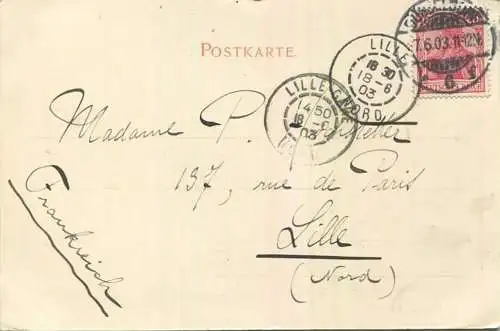 POSTKARTE.
LILLE
18 30
18-6
03
NORD
7.6.03.11-12V.
LILLE
14 50
18-6
03
Madame P.
137, rue de Paris
Lille
(Nord)
Frankreich